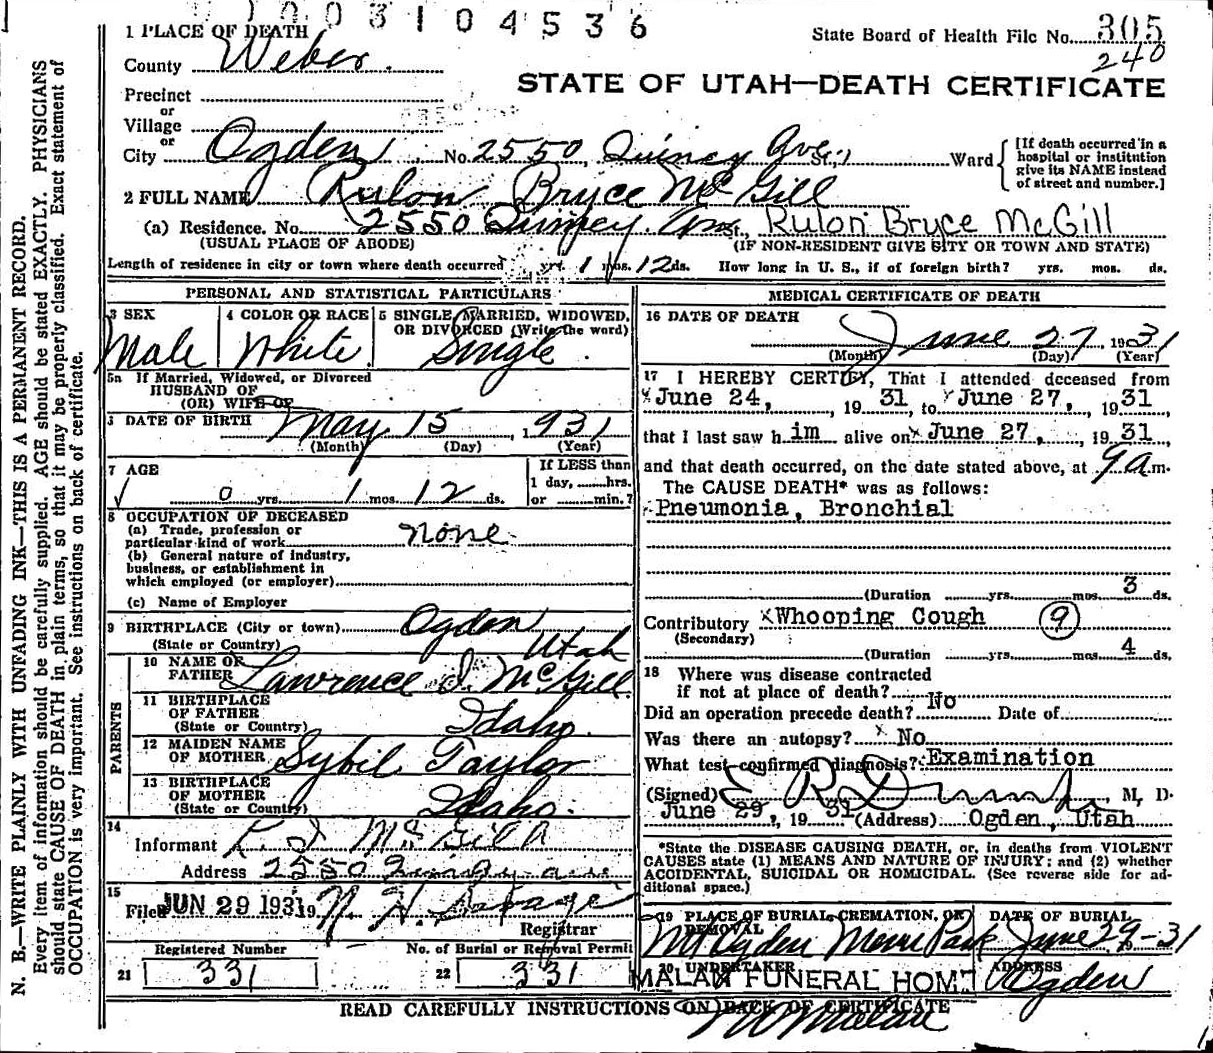 1003104536
1 PLACE OF DEATH
State Board of Health File No. 305
240
County Weber.
STATE OF UTAH—DEATH CERTIFICATE
Precinct
or
Village
or
City Ogden No. 2550 Quincy Ave., Ward
[If death occurred in a
hospital or institution
give its NAME instead
of street and number.]
2 FULL NAME Rulon Bryce McGill
(a) Residence. No. 2550 Quincy. Ave St., Rulon Bryce McGill
(USUAL PLACE OF ABODE) (IF NON-RESIDENT GIVE CITY OR TOWN AND STATE)
Length of residence in city or town where death occurred yrs. 1 mos. 12 ds. How long in U. S., if of foreign birth? yrs. mos. ds.
PERSONAL AND STATISTICAL PARTICULARS
3 SEX
Male
4 COLOR OR RACE
White
5 SINGLE, MARRIED, WIDOWED,
OR DIVORCED (Write the word)
Single
5a If Married, Widowed, or Divorced
HUSBAND OF
(OR) WIFE OF
DATE OF BIRTH May 15, 1931
(Month) (Day) (Year)
7 AGE
0 yrs. 1 mos. 12 ds.
If LESS than
1 day, hrs.
or min.?
8 OCCUPATION OF DECEASED
(a) Trade, profession or
particular kind of work none
(b) General nature of industry,
business, or establishment in
which employed (or employer)
(c) Name of Employer
9 BIRTHPLACE (City or town) Ogden
(State or Country) Utah
PARENTS
10 NAME OF
FATHER Lawrence I. McGill
11 BIRTHPLACE
OF FATHER
(State or Country) Idaho.
12 MAIDEN NAME
OF MOTHER Sybil Taylor
13 BIRTHPLACE
OF MOTHER
(State or Country) Idaho.
14
Informant L. I McGill
Address 2550 Quincy ave
15
Filed JUN 29 1931 19 N. H. Savage
Registrar
Registered Number
21 331
No. of Burial or Removal Permit
22 331
MEDICAL CERTIFICATE OF DEATH
16 DATE OF DEATH
June 27, 1931
(Month) (Day) (Year)
17 I HEREBY CERTIFY, That I attended deceased from
June 24, 19 31, to June 27, 19 31
that I last saw h im alive on June 27, 19 31,
and that death occurred, on the date stated above, at 9 a m.
The CAUSE DEATH* was as follows:
Pneumonia, Bronchial
(Duration yrs. mos. 3 ds.
Contributory Whooping Cough 9
(Secondary)
(Duration yrs. mos. 4 ds.
18 Where was disease contracted
if not at place of death? No
Did an operation precede death? Date of
Was there an autopsy? No
What test confirmed diagnosis? Examination
(Signed) E R Dumke, M. D.
June 29, 19 31 (Address) Ogden, Utah
*State the DISEASE CAUSING DEATH, or, in deaths from VIOLENT
CAUSES state (1) MEANS AND NATURE OF INJURY; and (2) whether
ACCIDENTAL, SUICIDAL OR HOMICIDAL. (See reverse side for ad-
ditional space.)
19 PLACE OF BURIAL, CREMATION, OR
REMOVAL
Mt Ogden Mem Park
DATE OF BURIAL
June 29-31
20 UNDERTAKER
MALAN FUNERAL HOME
ADDRESS
Ogden
READ CAREFULLY INSTRUCTIONS ON BACK OF CERTIFICATE
Malan
N. B.—WRITE PLAINLY WITH UNFADING INK—THIS IS A PERMANENT RECORD.
Every item of information should be carefully supplied. AGE should be stated EXACTLY. PHYSICIANS
should state CAUSE OF DEATH in plain terms, so that it may be properly classified. Exact statement of
OCCUPATION is very important. See instructions on back of certificate.